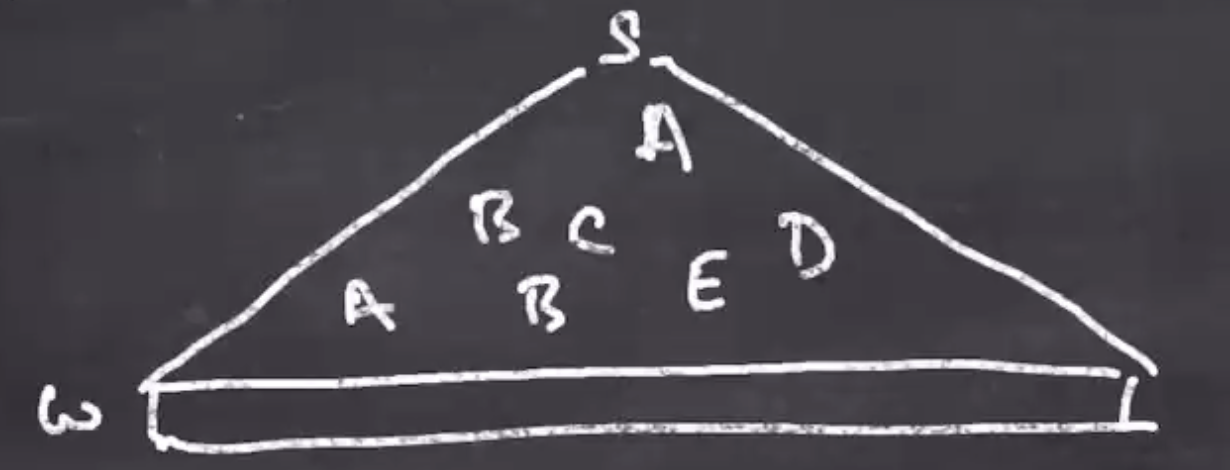 S
A
B C D
A B E
W